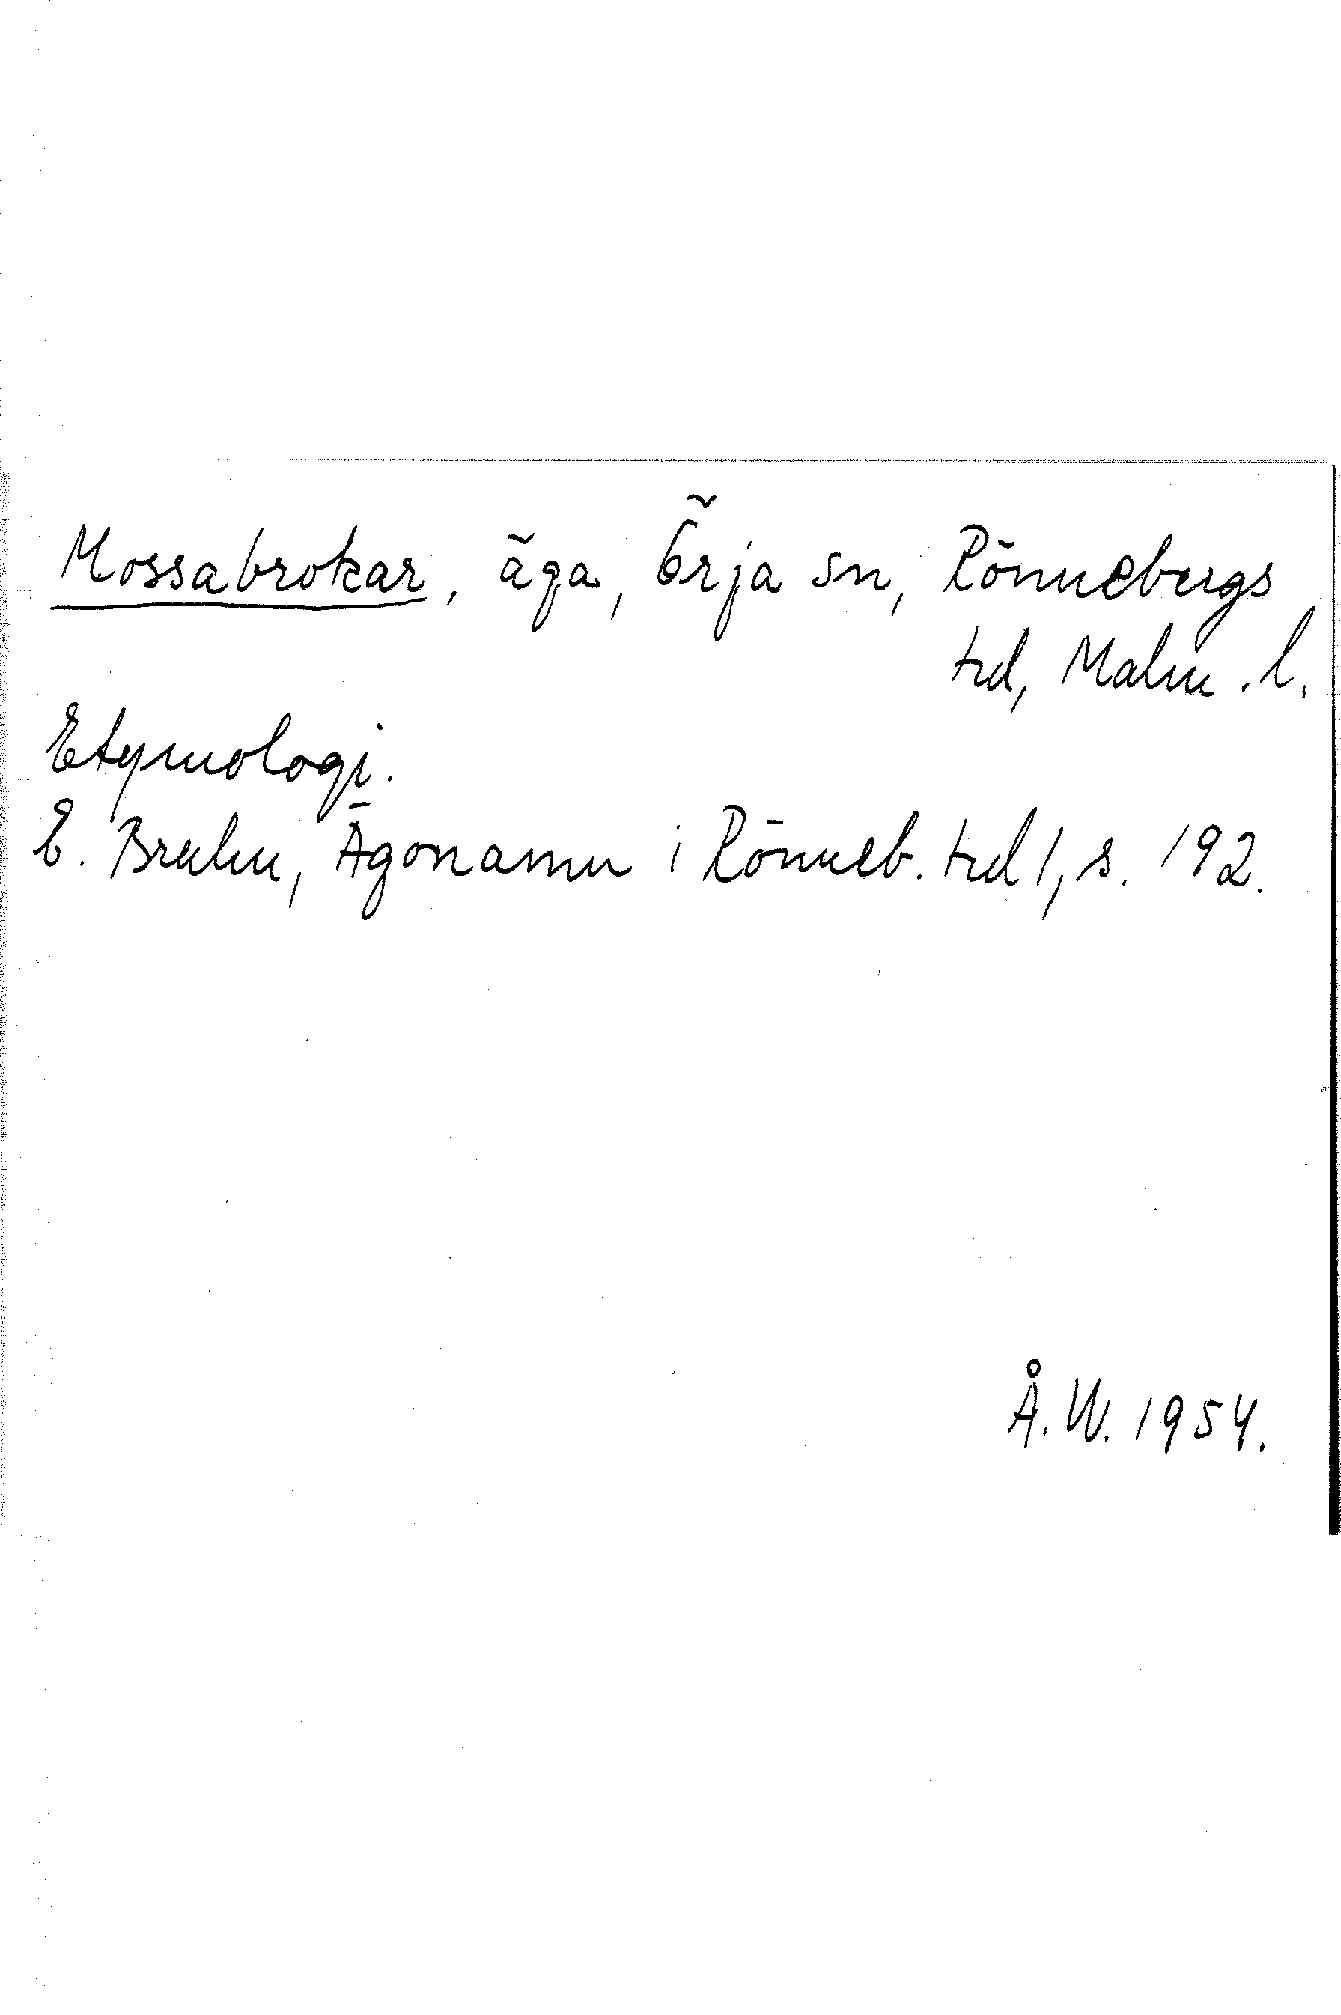 Mossabrokar, äga, Örja sn, Rönnebergs
hd, Malm. l.
Etymologi.
E. Bruhn, Ägonamn i Rönneb. hd 1, s. 192.
Å.W. 1954.